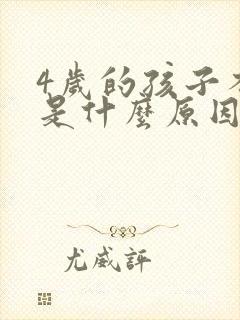 4歲的孩子
是什麼原因
尤威評